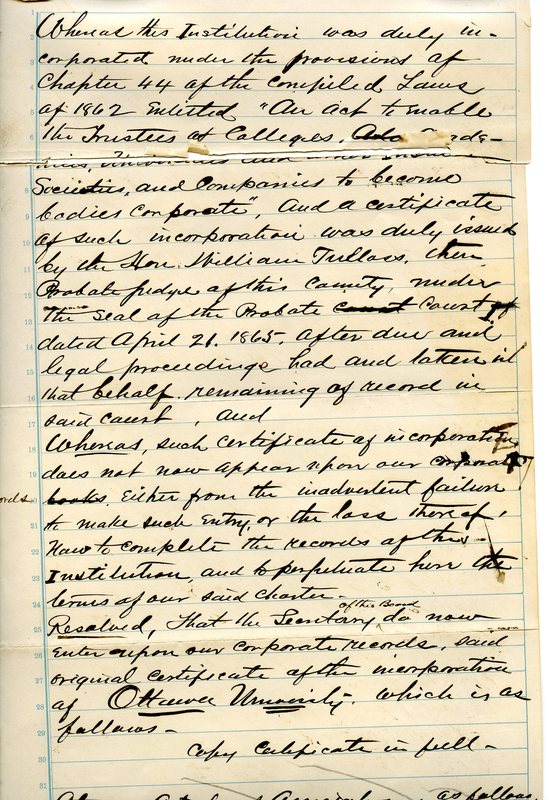 Whereas this Institution was duly in-
corporated under the provisions of
Chapter 44 of the Compiled Laws
of 1862 Entitled "An act to enable
the Trustees of Colleges, Aca-
Societies, and Companies to become
bodies corporate", and a certificate
of such incorporation was duly issued
by the Hon. William Tulloss, then
Probate judge of this County, under
the Seal of the Probate court Court of
dated April 21. 1865. after due and
legal proceedings had and taken in
that behalf remaining of record in
said court, and
Whereas, such certificate of incorporation
does not now appear upon our corporate
books. Either from the inadvertent failure
to make such Entry, or the loss thereof,
Now to complete the records of this
Institution, and to perpetuate here the
terms of our said charter.
Resolved, that the Secretary of this Board do now
Enter upon our corporate records, said
original certificate of the incorporation
of Ottawa University. Which is as
follows -
Copy Certificate in full -
as follows